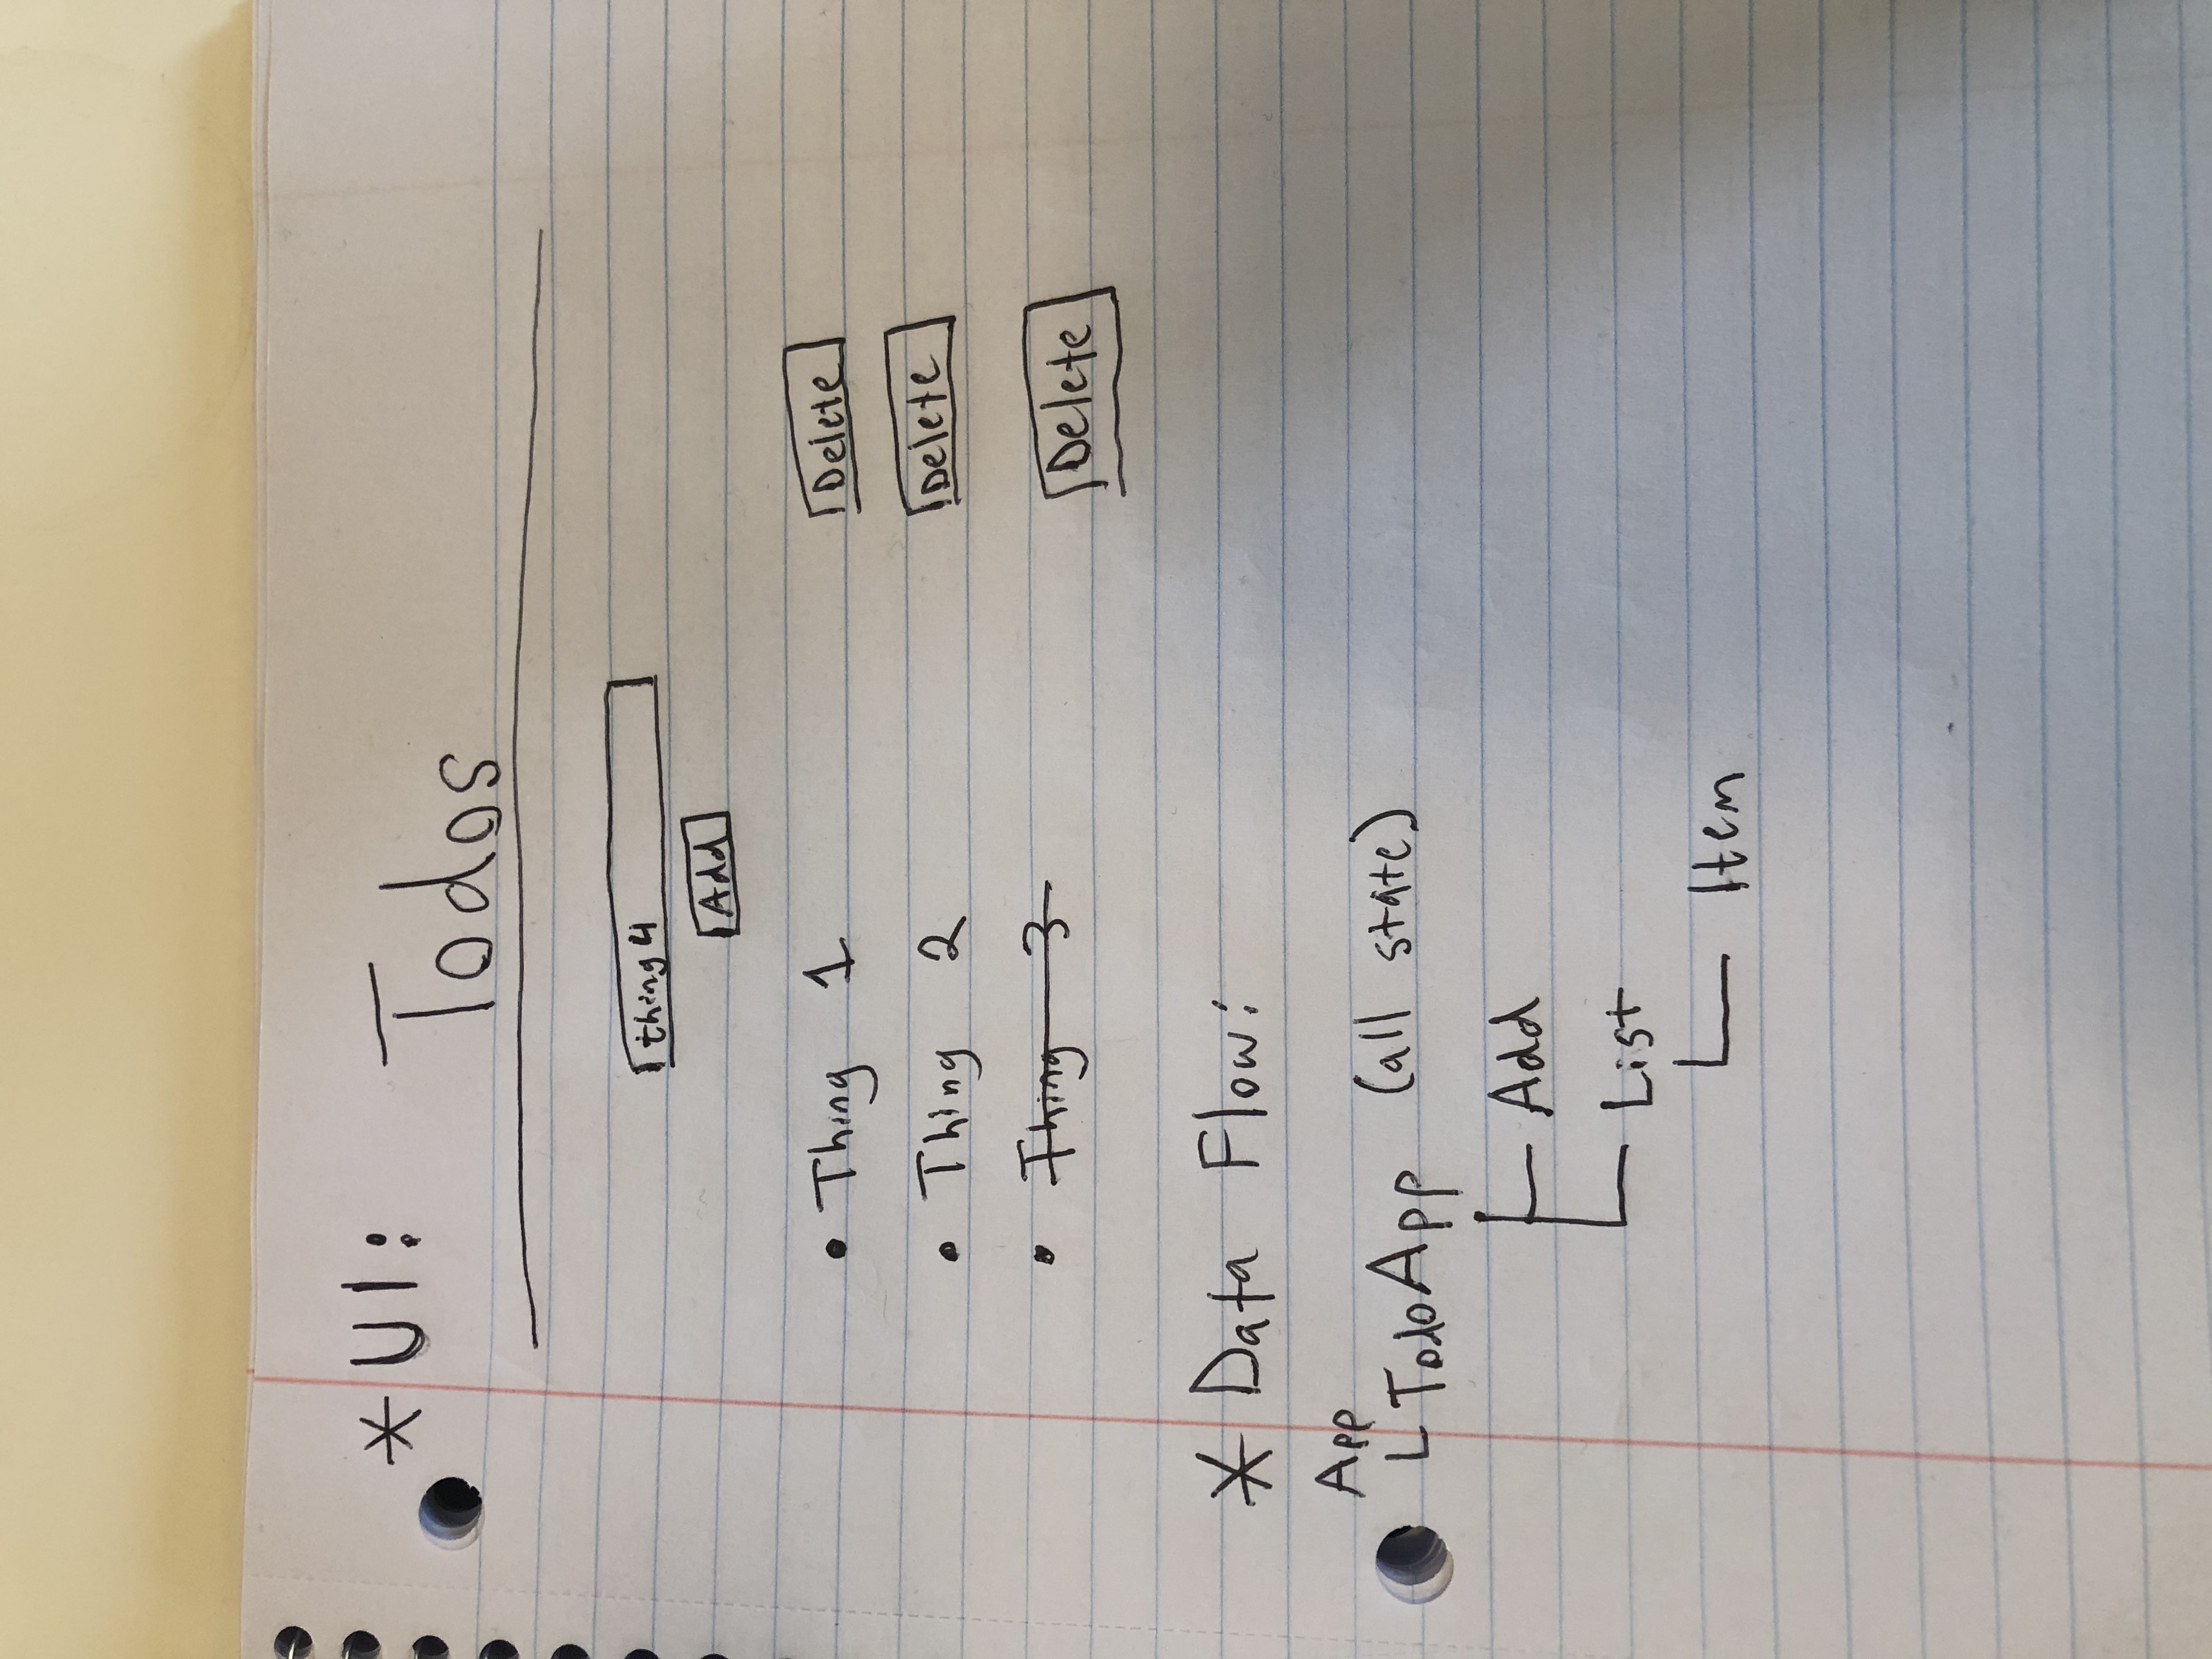 * UI: Todos
thing 4
Add
• Thing 1 Delete
• Thing 2 Delete
• Thing 3 Delete
* Data Flow:
App
TodoApp (all state)
Add
List
Item